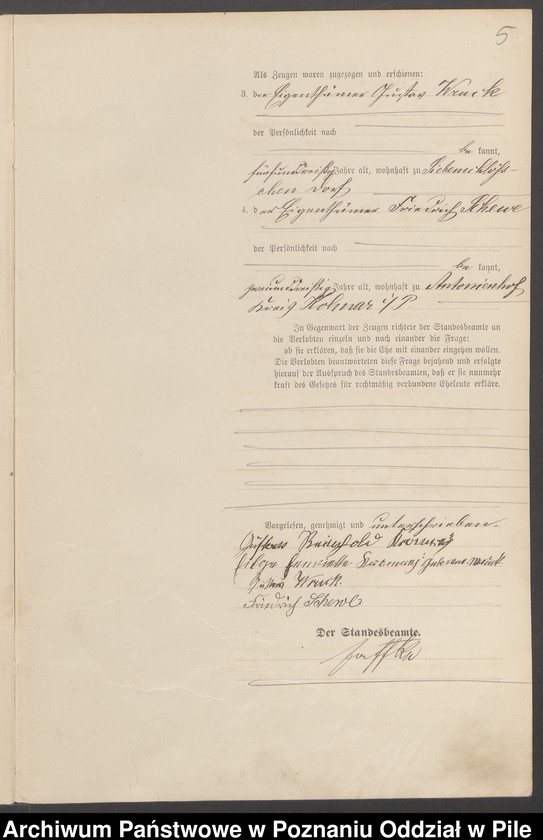 5
Als Zeugen waren zugezogen und erschienen:
3. der Eigenthümer Gustav Wruck
der Persönlichkeit nach
be kannt,
fünfunddreißig Jahre alt, wohnhaft zu Siebenschlöß-
chen Dorf
4. der Eigenthümer Friedrich Schewe
der Persönlichkeit nach
be kannt,
Jahre alt, wohnhaft zu Antonienhof
Kreis Kolmar i/P
In Gegenwart der Zeugen richtete der Standesbeamte an
die Verlobten einzeln und nach einander die Frage:
ob sie erklären, daß sie die Ehe mit einander eingehen wollen.
Die Verlobten beantworteten diese Frage bejahend und erfolgte
hierauf der Ausspruch des Standesbeamten, daß er sie nunmehr
kraft des Gesetzes für rechtmäßig verbundene Eheleute erkläre.
Vorgelesen, genehmigt und unterschrieben.
Gustav Reinhold
Henriette geborene Wruck
Gustav Wruck.
Friedrich Schewe
Der Standesbeamte.
Archiwum Państwowe w Poznaniu Oddział w Pile